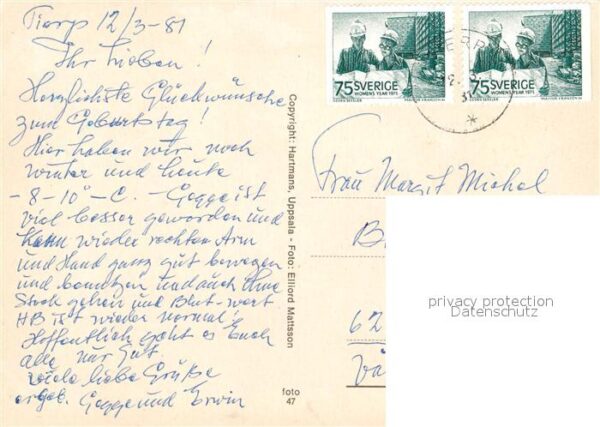 Tierp 12/3-81
Ihr Lieben!
Herzlichste Glückwünsche
zum Geburtstag!
Hier haben wir noch
winter und heute
-8-10°-C. Gogge ist
viel besser geworden und
kann wieder rechten Arm
und Hand ganz gut bewegen
und benützen und auch ohne
Stock gehen und Blut-wert
HB ist wieder normal!
Hoffentlich geht es Euch
alle nur gut.
viele liebe Grüße
ergeb. Gogge und Erwin
Copyright: Hartmans, Uppsala - Foto: Elliord Mattsson
foto
47
75 SVERIGE
WOMENS YEAR 1975
75 SVERIGE
WOMENS YEAR 1975
Frau Margit Michel
B
62
privacy protection
Datenschutz